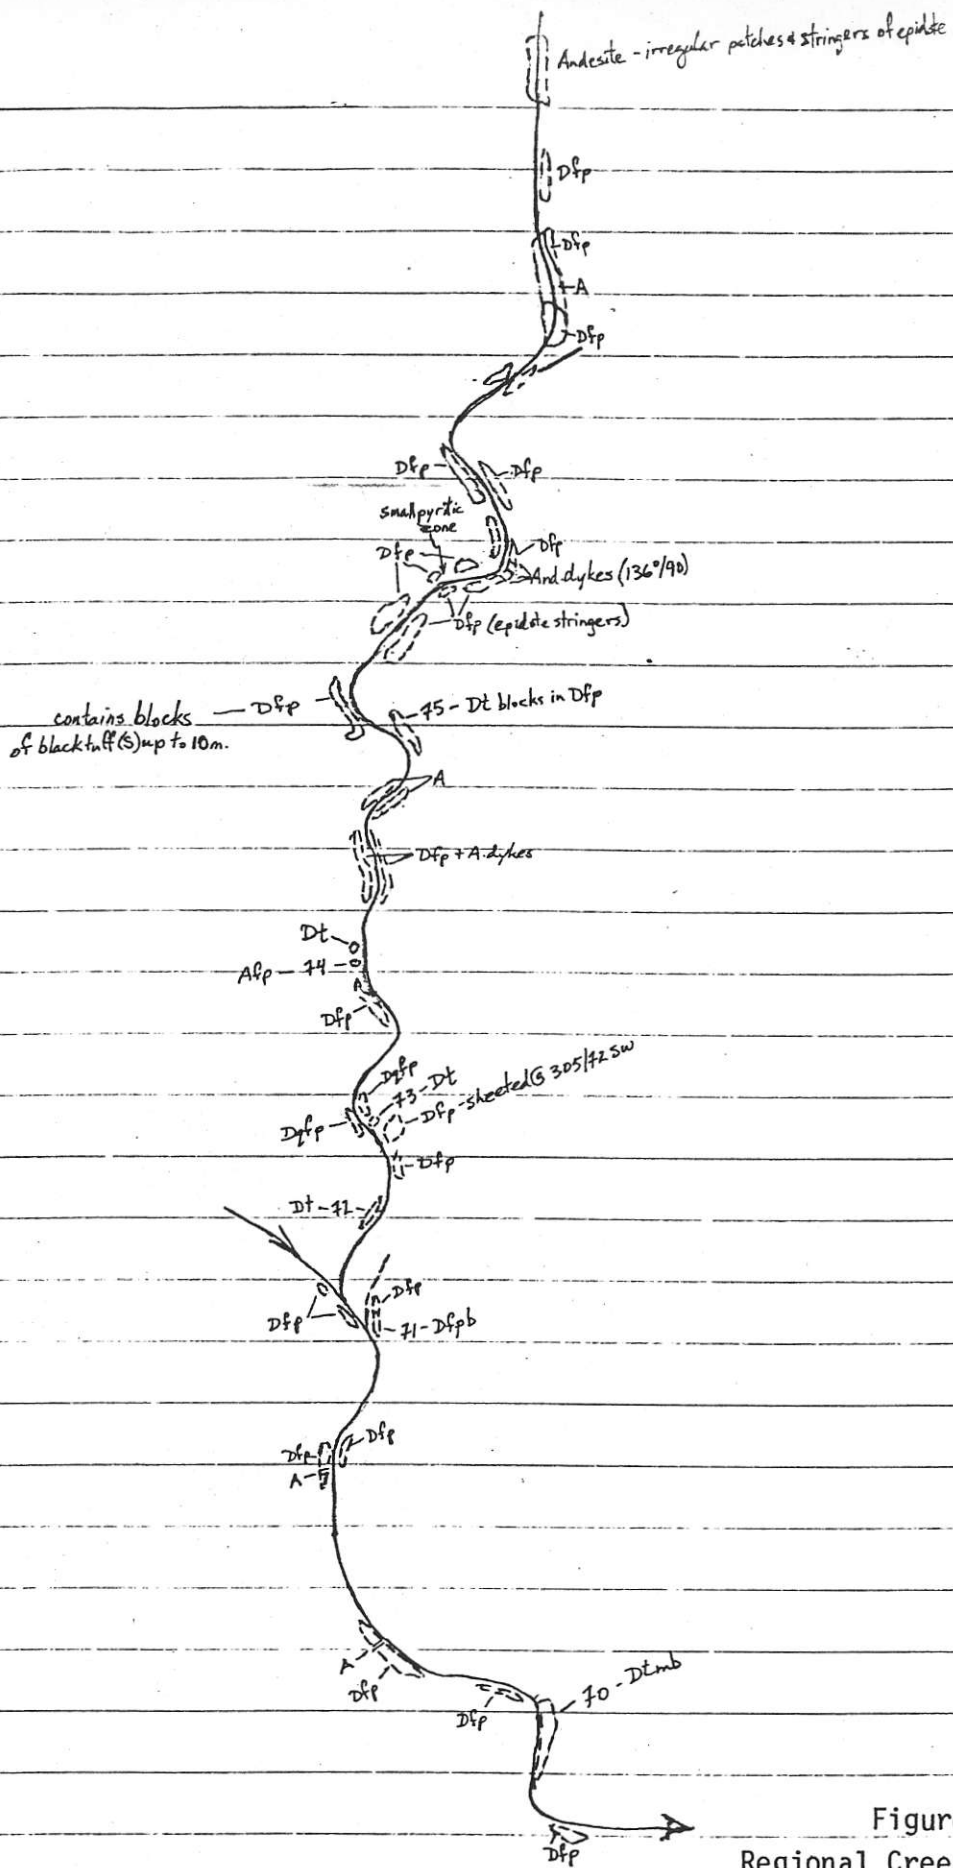 Andesite - irregular patches & stringers of epidote
Dfp
Dfp
A
Dfp
Dfp
Dfp
small pyritic
zone
Dfp
Dfp
And. dykes (136°/90)
Dfp (epidote stringers)
Dfp
75 - Dt blocks in Dfp
contains blocks
of black tuff(s) up to 10m.
A
Dfp + A. dykes
Dt
Afp - 74
A
Dfp
Dqfp
73 - Dt
Dfp - sheeted @ 305/72 SW
Dqfp
Dfp
Dt - 72
Dfp
Dfp
71 - Dfpb
Dfp
Dfp
A
A
Dfp
70 - Dtmb
Dfp
Figur
Regional Cree
Dfp